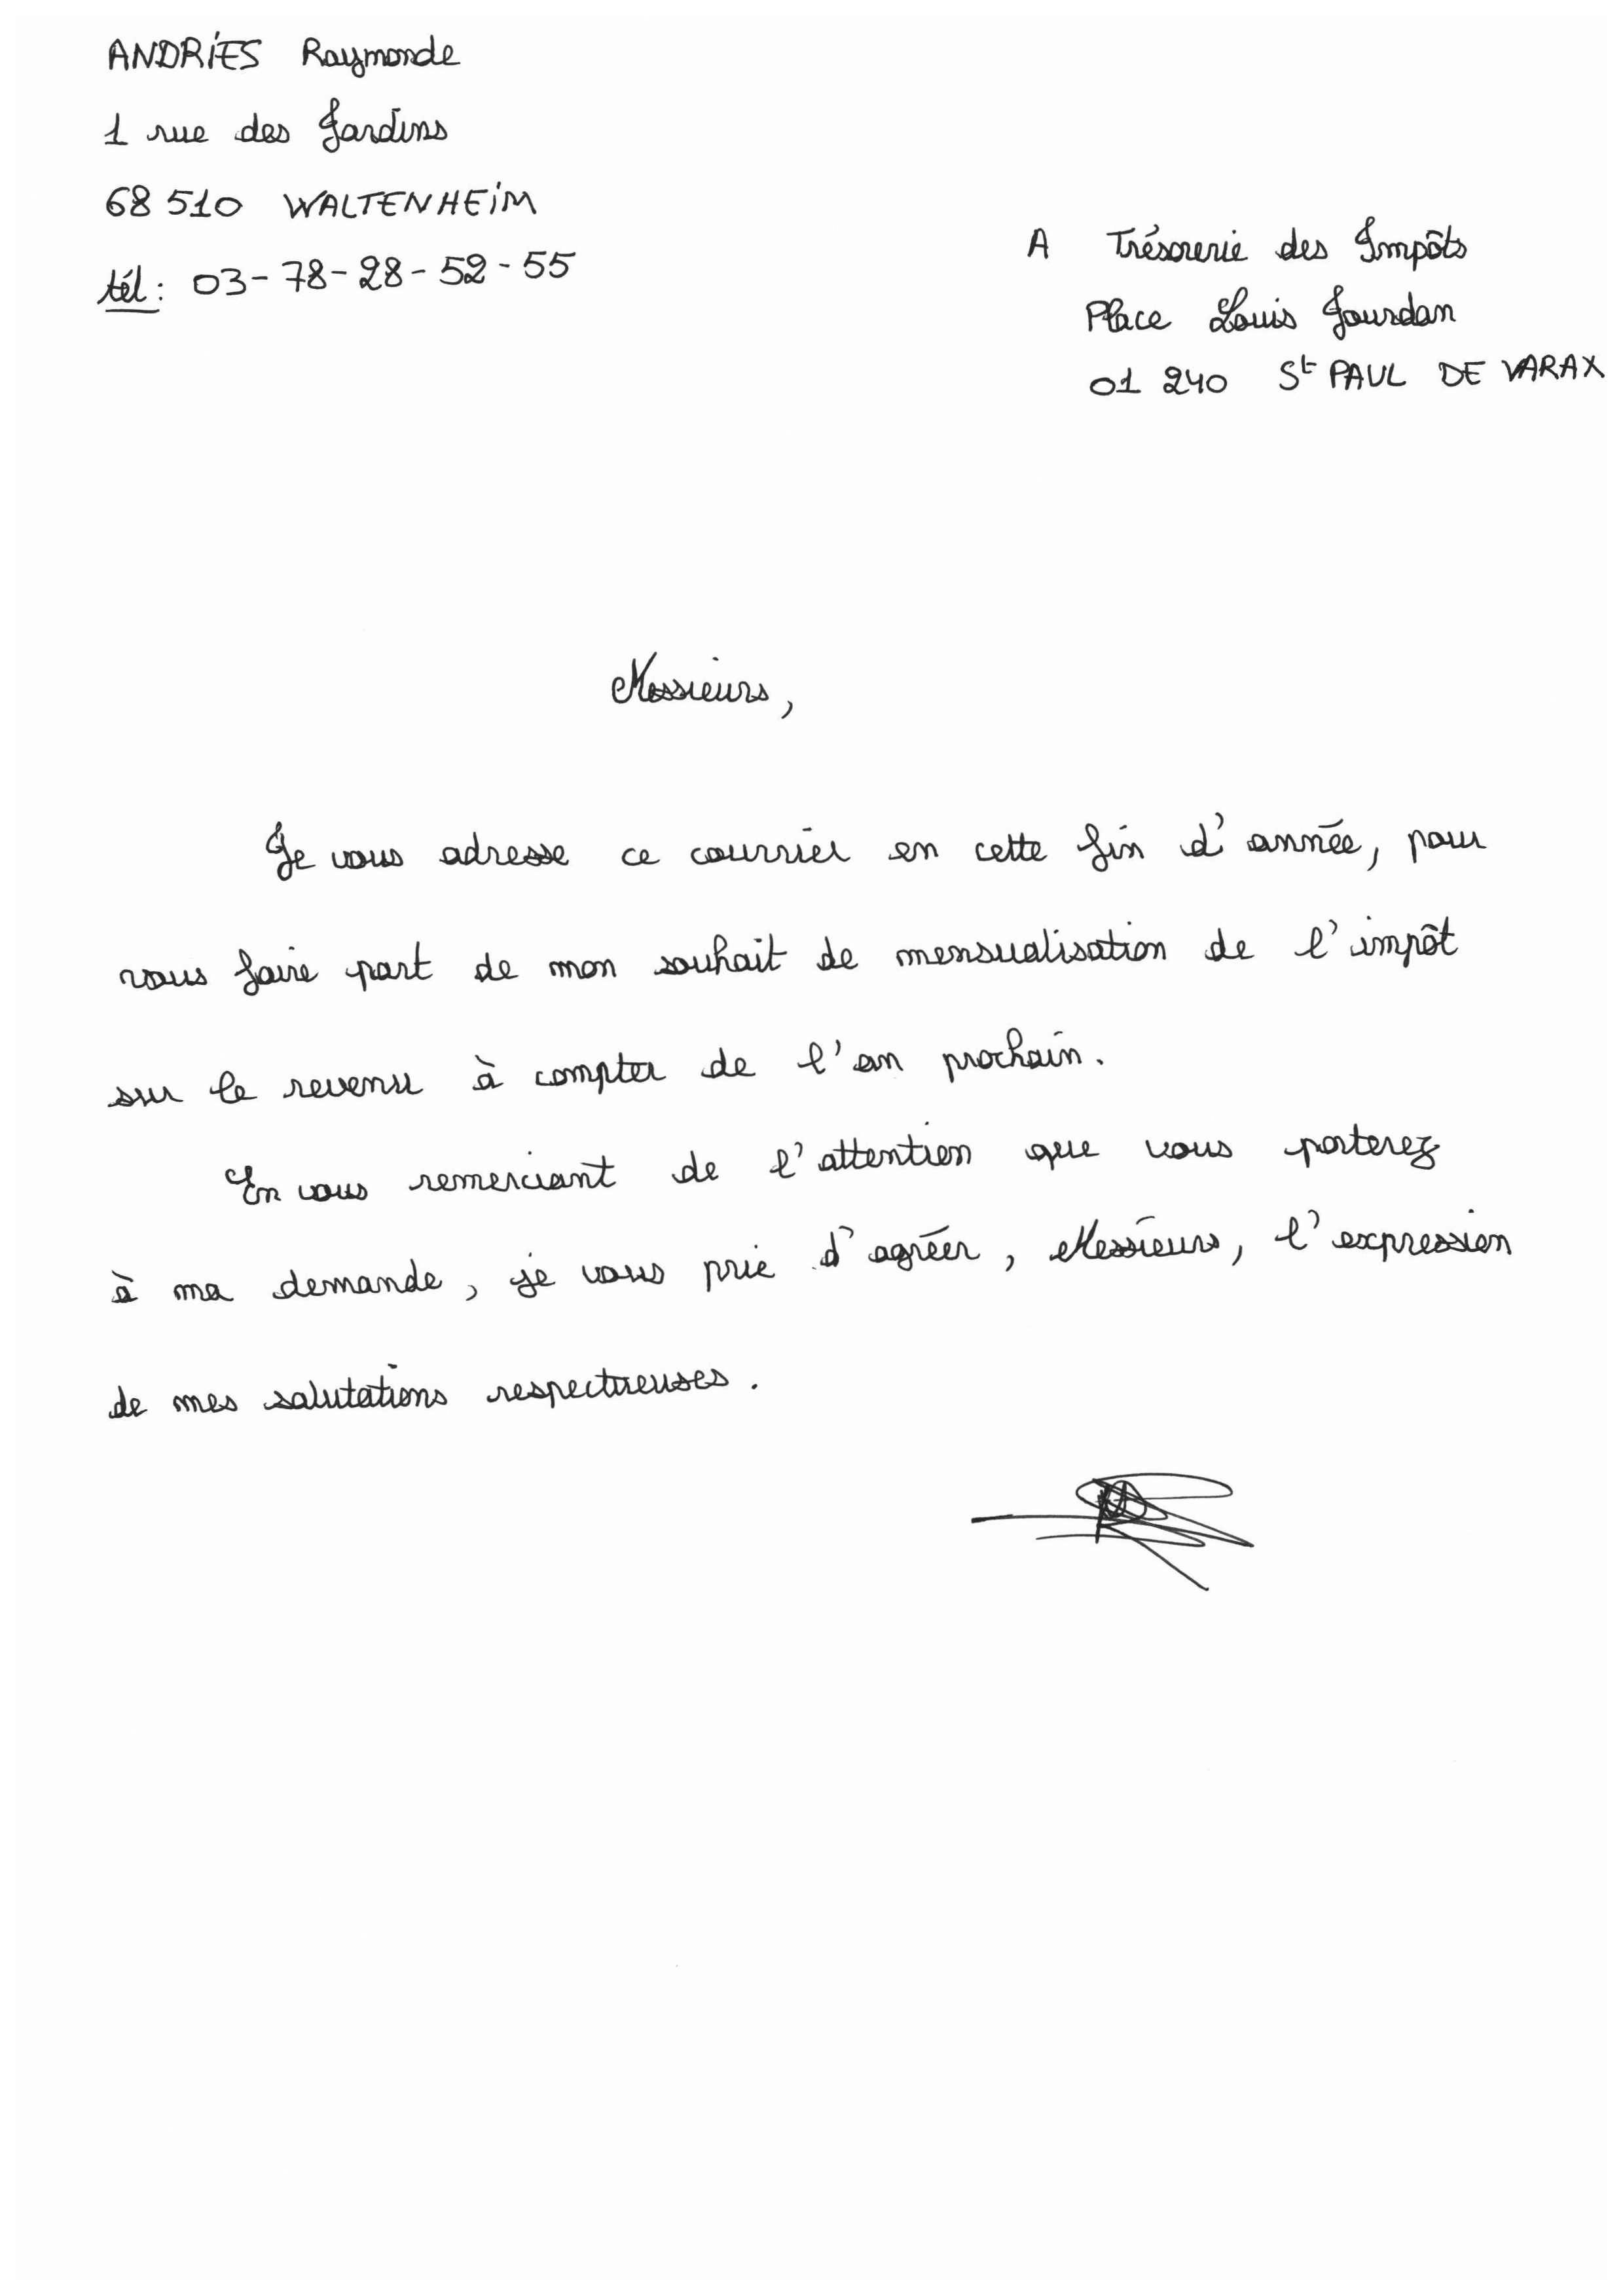 ANDRIES Raymonde
1 rue des Jardins
68 510 WALTENHEIM
tél : 03-78-28-52-55
A Trésorerie des Impôts
Place Louis Jourdan
01 240 St PAUL DE VARAX
Messieurs,
Je vous adresse ce courrier en cette fin d'année, pour
vous faire part de mon souhait de mensualisation de l'impôt
sur le revenu à compter de l'an prochain.
En vous remerciant de l'attention que vous porterez
à ma demande, je vous prie d'agréer, Messieurs, l'expression
de mes salutations respectueuses.